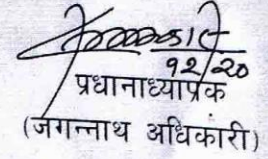 १२/२०
प्रधानाध्यापक
(जगन्नाथ अधिकारी)